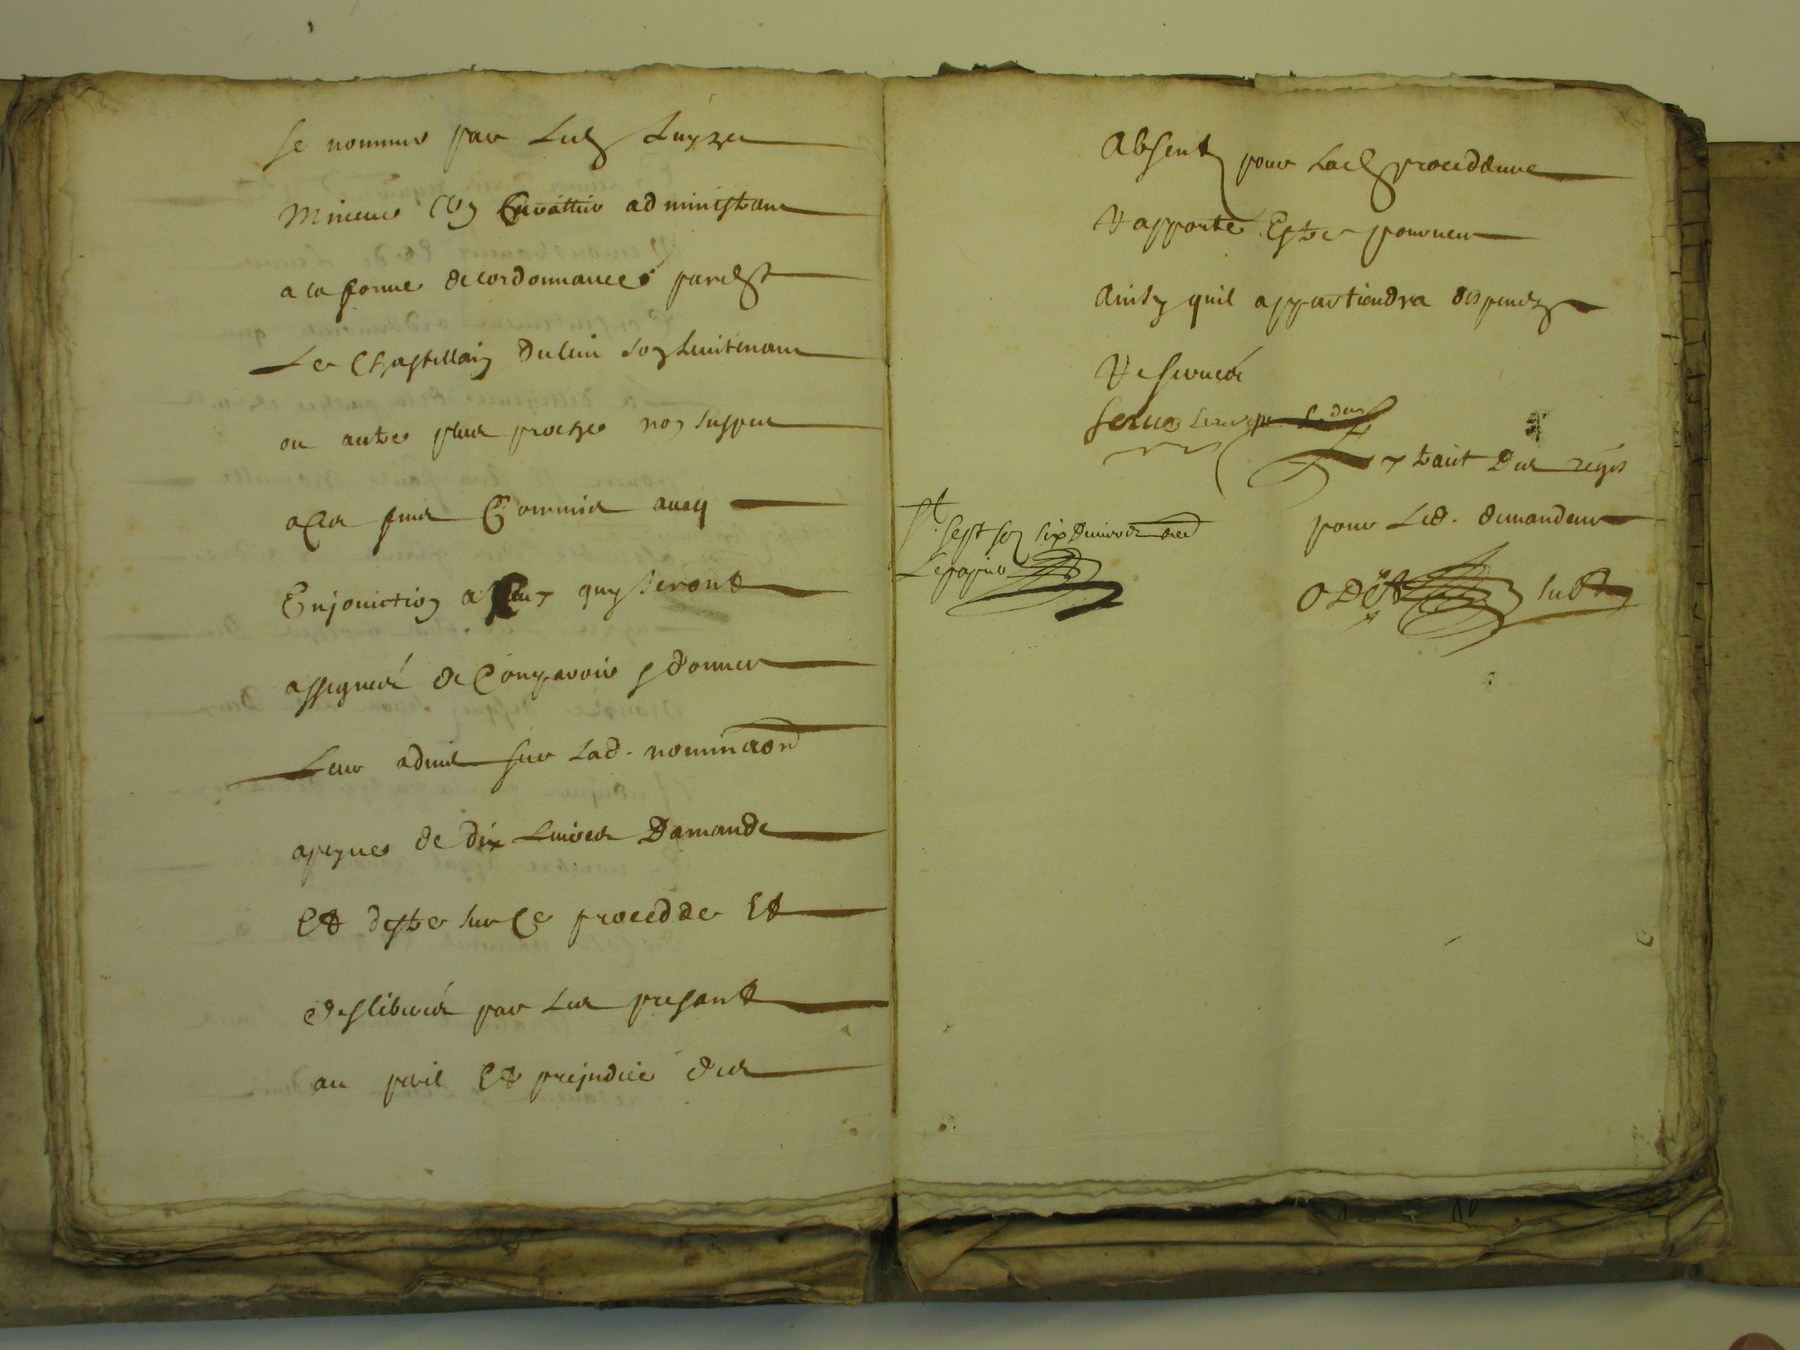 se nommer par Led Luyzer
Mineur Un Curatteur administrateur
a la forme de lordonnance pardt
Le Chastellain dulieu son Lieutenant
ou autre plus proche non suspect
a Ces fins Commis avecq
Enjonction a Ceux quy seront
assignés de Comparoir y donner
Leur advis sur Lad. nomination
apeyne de dix Livres Damande
Et destre sur Ce procedder Et
desliberé par Les presant
au peril Et prejudice des
Absent pour Lad proceddeure
Raportée Estre pourveu
Ainsy quil appartiendra despends
Reservés
Extraict Des regis
pour Led. demandeur
sept sol six deniers
Le papier
ODET